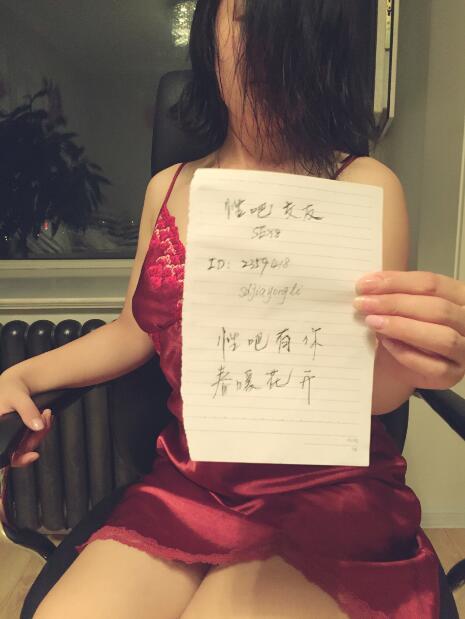 性吧交友
SEX8
ID: 2359418
sdjiayongli
性吧有你
春暖花开